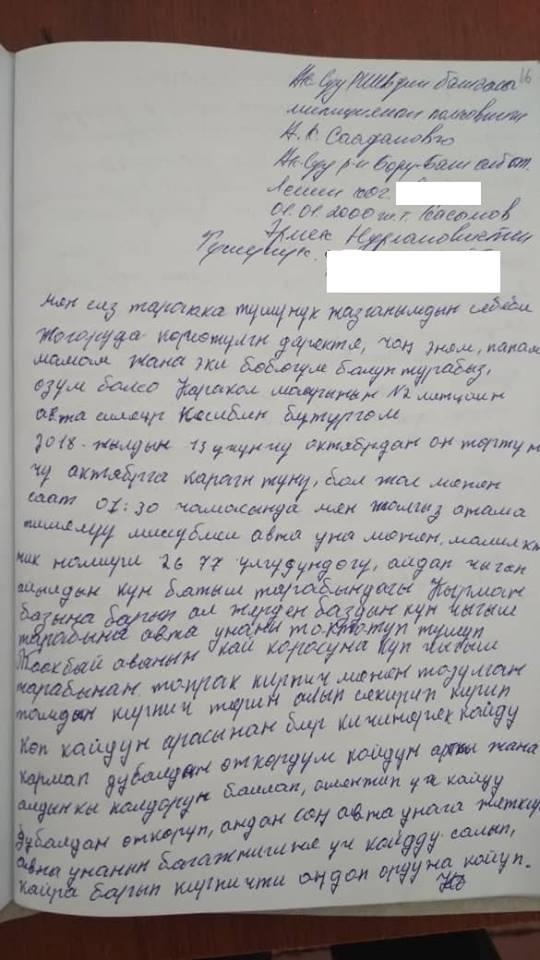 16
Ак-Суу РИИБдин башчысы
милициянын полковниги
А. К. Саадановго
Ак-Суу р-н Бору-Баш айылт.
Ленин коч.
01.01.2000-ж.т. Касомов
Эрмек Нурлановичтин
Түшүнүк.
мен сиз тарапка түшүнүк жазганымдын себеби
жогоруда көрсөтүлгн даректе, чоң энем, папам
мамам жана эки бөбөгүм болуп турабыз,
өзүм болсо Каракол шаарынын №2 лицейин
авта слесарь кесибин бүтүргөм.
2018-жылдын 13 үчүнчү октябрдан он төртүн
чү октябрга караган түнү, бол жол менен
саат 01:30 чамасында мен жалгыз атама
тиешелүү мисубиси авта унаа менен, мамлекет
тик номиги 26 77 үлгүсүндөгү, айдап чыгып
айылдын күн батыш тарабындагы Кырман
базына барып ал жерден баздын күн чыгыш
тарабына авта унааны токтотуп түшүп
Токбай аванын кой коросуна күн чыгыш
тарабынан топрак кирпич менен тозулган
тамдын кирпич терин алып секирип кирип
көп койдун арасынан бир кичинерек койду
кармап дубалдан откордум койдун арткы жана
алдынкы колдорун байлап, ошентип үч койду
дубалдан откоруп, андан соң авта унага жеткируп
авта унанын багажнигине үч койдду салып,
кайра барып кирпичти оңдоп ордуна койуп.